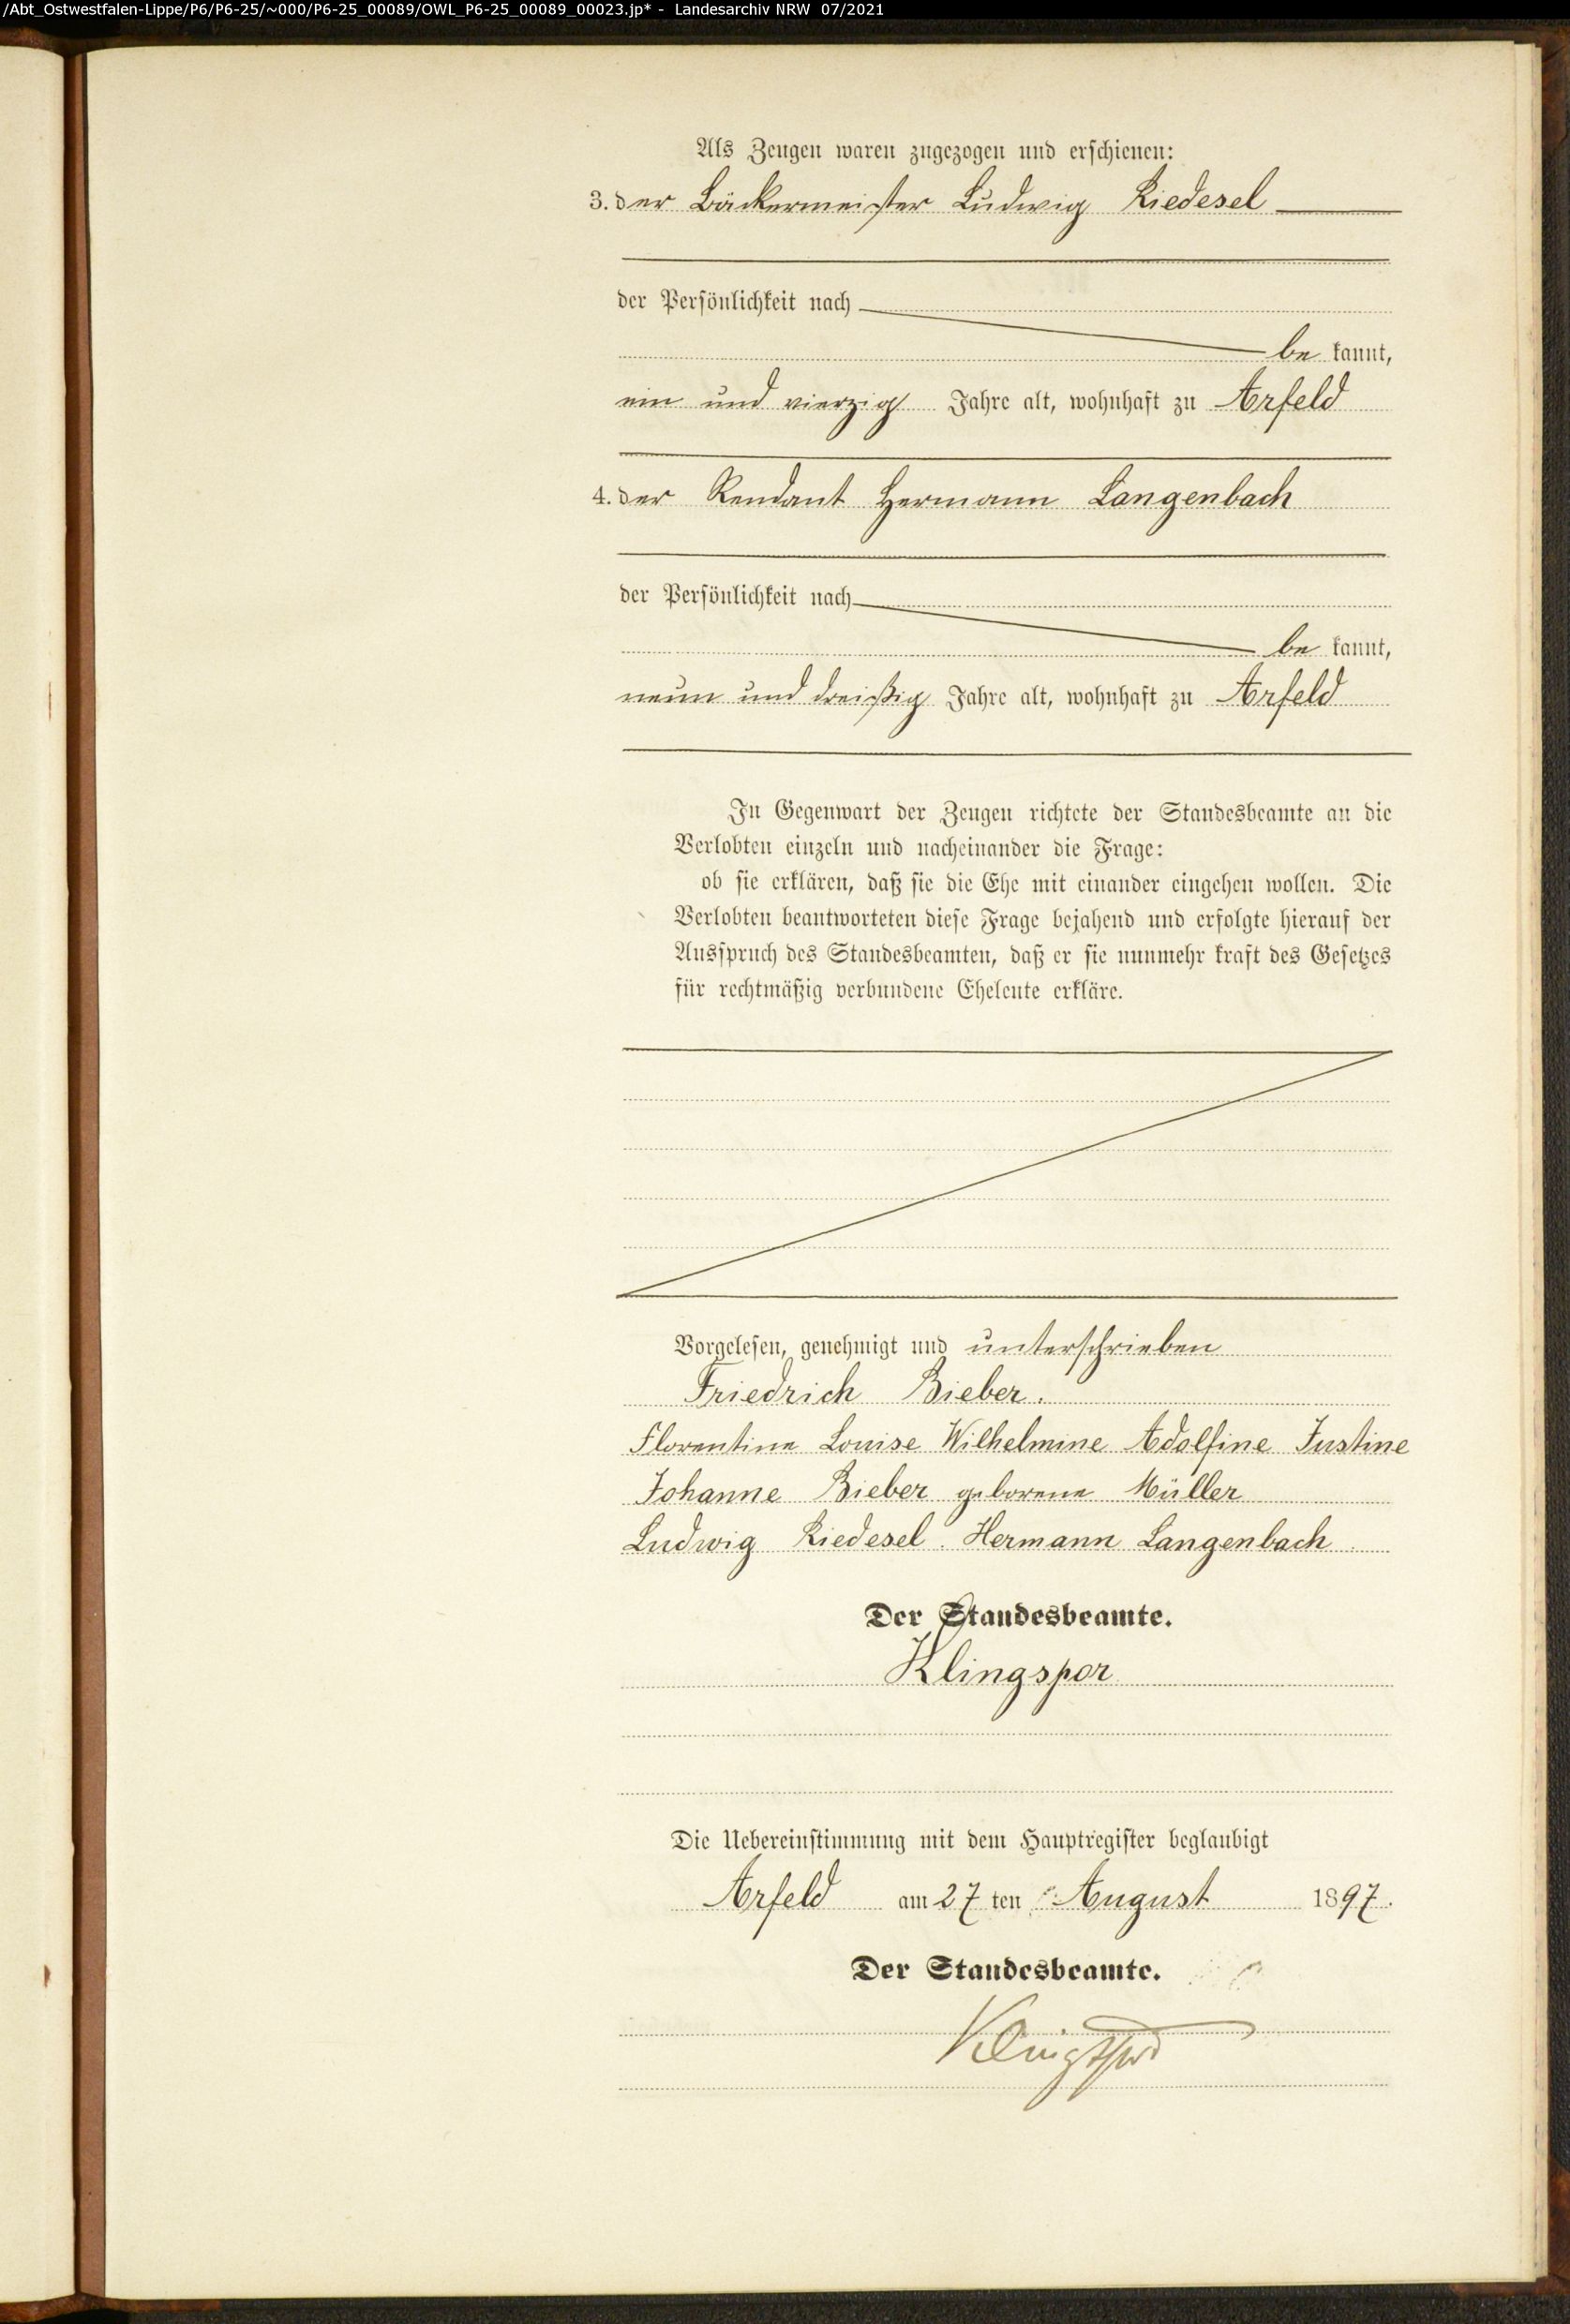 /Abt_Ostwestfalen-Lippe/P6/P6-25/~000/P6-25_00089/OWL_P6-25_00089_00023.jp* - Landesarchiv NRW 07/2021
Als Zeugen waren zugezogen und erschienen:
3. der Bäckermeister Ludwig Riedesel
der Persönlichkeit nach
be kannt,
ein und vierzig Jahre alt, wohnhaft zu Arfeld
4. der Rendant Hermann Langenbach
der Persönlichkeit nach
be kannt,
neun und dreißig Jahre alt, wohnhaft zu Arfeld
In Gegenwart der Zeugen richtete der Standesbeamte an die
Verlobten einzeln und nacheinander die Frage:
ob sie erklären, daß sie die Ehe mit einander eingehen wollen. Die
Verlobten beantworteten diese Frage bejahend und erfolgte hierauf der
Ausspruch des Standesbeamten, daß er sie nunmehr kraft des Gesetzes
für rechtmäßig verbundene Eheleute erkläre.
Vorgelesen, genehmigt und unterschrieben
Friedrich Bieber.
Florentine Louise Wilhelmine Adolfine Justine
Johanne Bieber geborene Müller
Ludwig Riedesel. Hermann Langenbach
Der Standesbeamte.
Klingspor
Die Uebereinstimmung mit dem Hauptregister beglaubigt
Arfeld am 27 ten August 1897.
Der Standesbeamte.
Klingspor